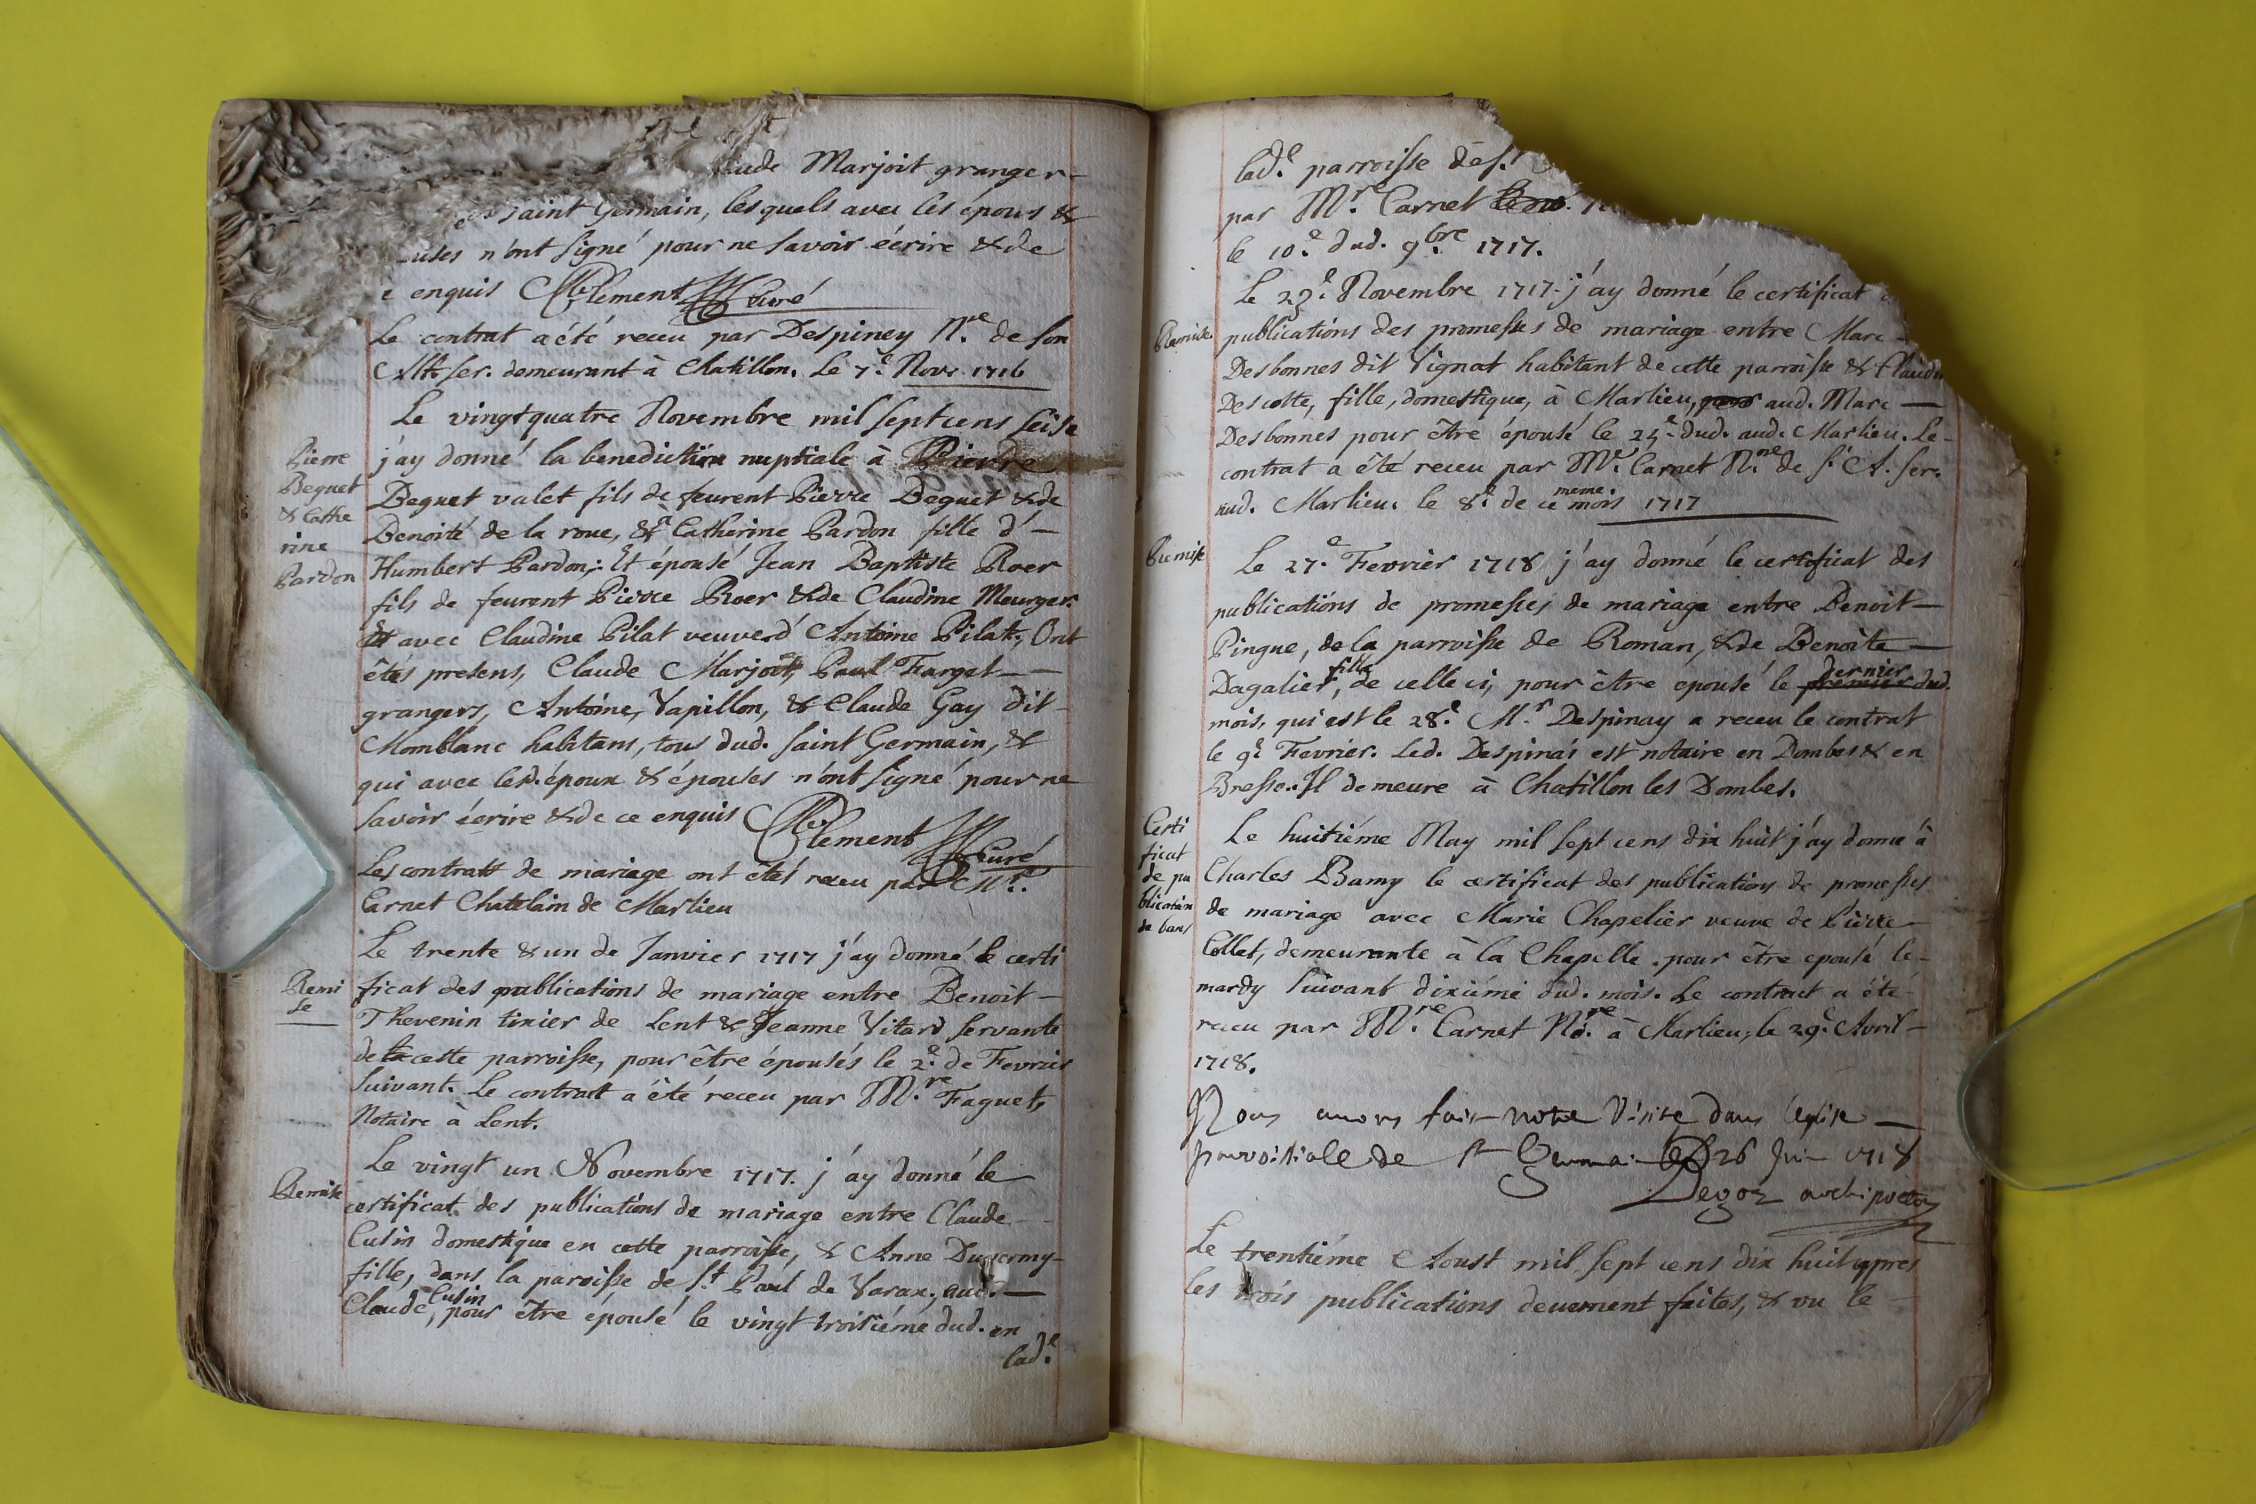 Marjoit granger-
saint Germain, lesquels avec les épous &
n'ont signé pour ne savoir écrire & de
enquis Clement Curé
Le contrat a été receu par Despiney N.re de son
Alt. ser. demeurant à Chatillon. Le 7.e Novr. 1716
Le vingt quatre Novembre mil sept cens seise
Pierre
Beguet
& Cathe
rine
Pardon
j'ay donné la benediction nuptiale à Pierre
Beguet valet fils de feurent Pierre Beguet & de
Benoite de la roue, & Catherine Pardon fille d'-
Humbert Pardon,: Et épousé Jean Baptiste Roer
fils de feurent Pierre Roer & de Claudine Meurger.
avec Claudine Pilat veuve d' Antoine Pilat, Ont
êtés presens, Claude Marjoit, Paul Farget-
grangers, Antoine, Vapillon, & Claude Gay dit-
Momblanc habitans, tous dud. saint Germain, &
qui avec lesd. époux & épouses n'ont signé pour ne
savoir écrire & de ce enquis Clement Curé
Les contratt de mariage ont étés receu par M.re
Carnet Chatelain de Marlieu
Le trente & un de Janvier 1717 j'ay donné le certi
Remi
se
ficat des publications de mariage entre Benoit-
Thevenin tixier de Lent & Jeanne Vitard servante
de cette parroisse, pour être épousés le 2.e de Fevrier
suivant. Le contratt a êté receu par M.re Faguet,
Notaire à Lent.
Le vingt un Novembre 1717. j'ay donné le
Remise
certificat des publications de mariage entre Claude-
Cusin domestique en cette parroisse, & Anne
fille, dans la paroisse de S.t Paul de Varax, aud.-
Cusin
Claude, pour être épousé le vingt troisiéme dud. en
lad.e
lad.e parroisse de s.t
par M.re Carnet
le 10.e dud. 9.bre 1717.
Le 23.e Novembre 1717. j'ay donné le certificat
Remise
publications des promesses de mariage entre Marc-
Desbonnes dit Vignat habitant de cette parroisse &
Descotte, fille, domestique, à Marlieu, aud. Marc-
Desbonnes pour être épousé le 25.e dud. aud. Marlieu. Le-
contrat a êté receu par M.e Carnet N.re de s. A. ser.
aud. Marlieu. le 8.e de ce meme mois 1717
Remise
Le 27.e Fevrier 1718 j'ay donné le certificat des
publications de promesses de mariage entre Benoit-
Pingue, de la parroisse de Roman, & de Benoite-
Dagalier, fille, de celle ci, pour être epousé le premier dernier dud.
mois, qui est le 28.e M.r Despinay a receu le contrat
le 9.e Fevrier. Led. Despinai est notaire en Dombes & en
Bresse. Il demeure à Chatillon les Dombes.
Certi
ficat
de pu
blication
de bans
Le huitiéme May mil sept cens dix huit j'ay donné à
Charles Bamy le certificat des publications de promesses
de mariage avec Marie Chapelier veuve de Pierre
Collet, demeurante à la Chapelle. pour être epousé le-
mardy suivant dixiéme dud. mois. Le contract a été-
receu par M.re Carnet No.re à Marlieu, le 29.e Avril-
1718.
Nous avons fait notre Visite dans leglise-
parroissialle de st Germain le 26 Juin 1718
archipretre
Le trentiéme Aoust mil sept cens dix huit apres
les trois publications deuement faites, & vu le-